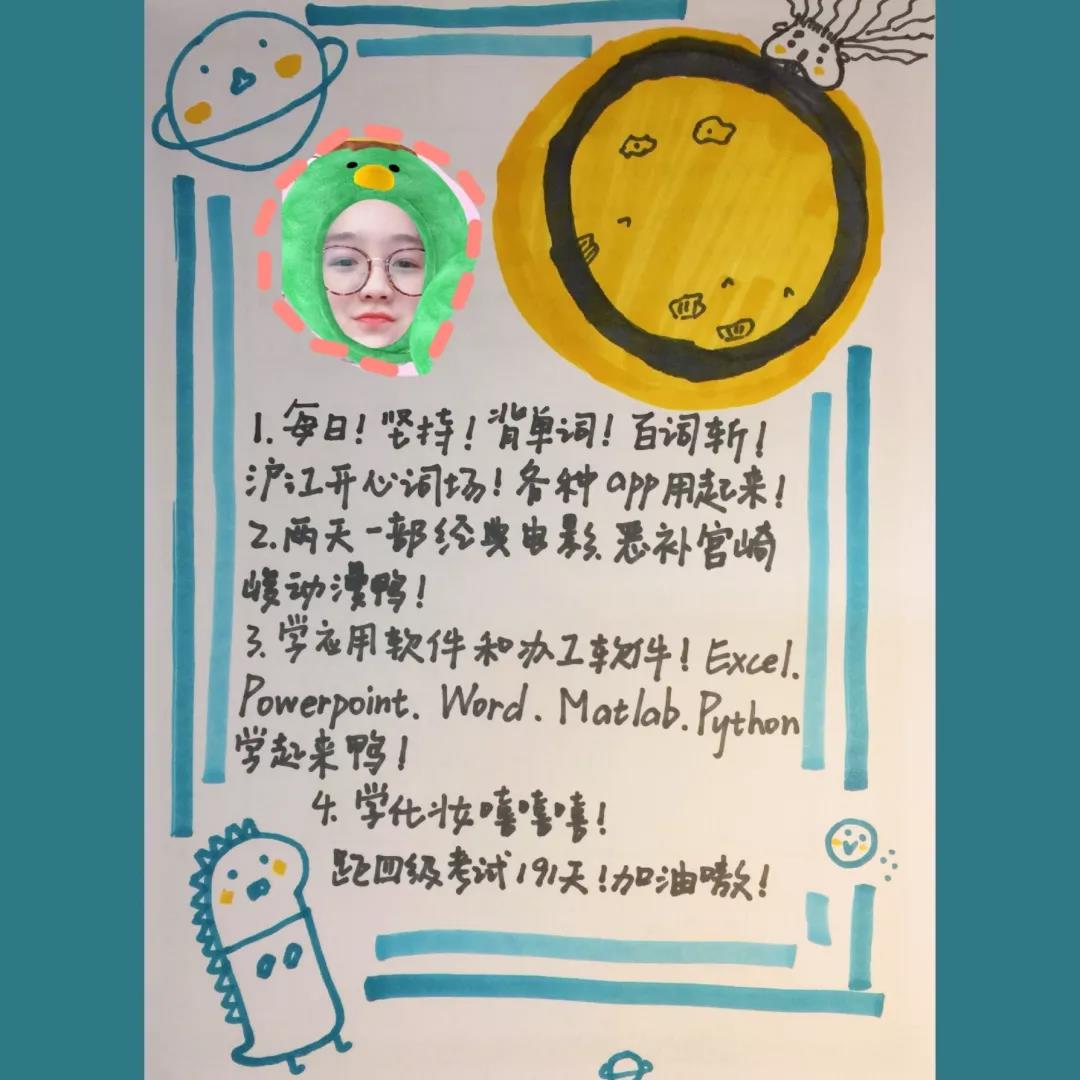 1. 每日! 坚持! 背单词! 百词斩!
沪江开心词场! 各种app用起来!
2. 两天一部经典电影. 恶补宫崎
峻动漫鸭!
3. 学应用软件和办工软件! Excel.
Powerpoint. Word. Matlab. Python
学起来鸭!
4. 学化妆嘻嘻嘻!
距四级考试191天!加油嗷!